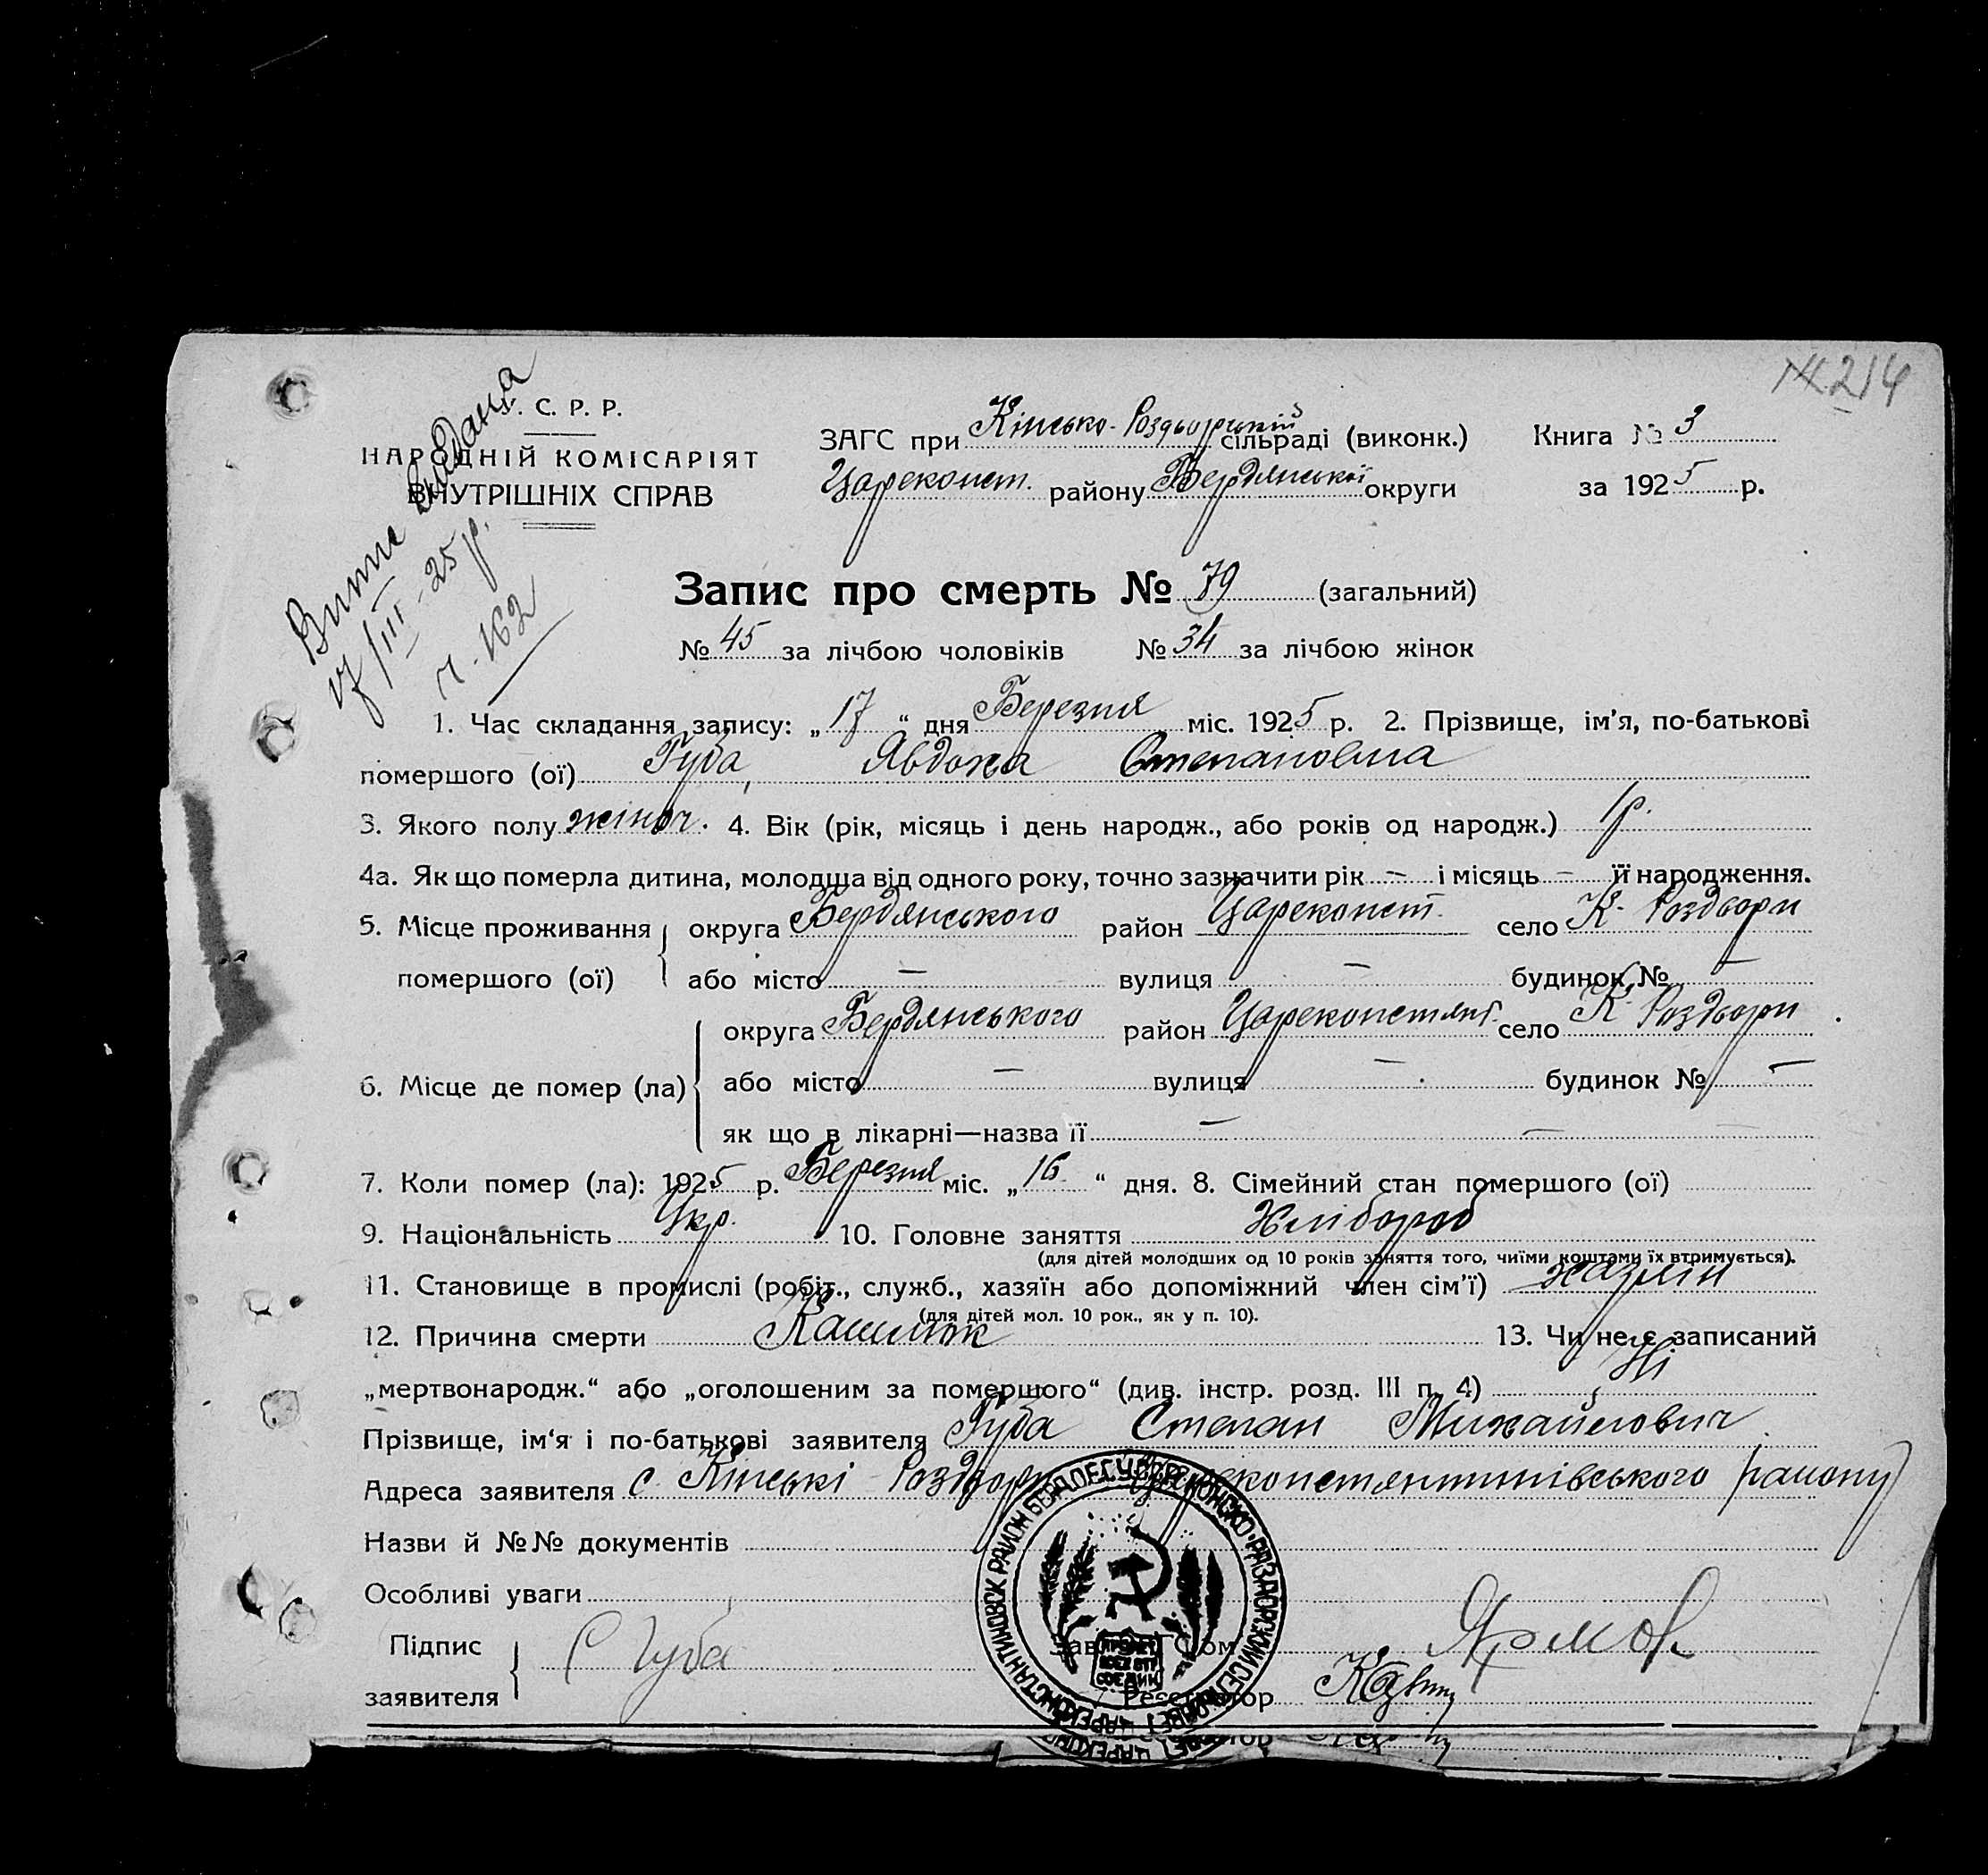 214
У. С. Р. Р.
НАРОДНІЙ КОМІСАРІЯТ
ВНУТРІШНІХ СПРАВ
Витис видана
17/III-25 р.
ч. 162
ЗАГС при Кінсько-Роздорській сільраді (виконк.) Книга № 3
Цареконст. району Бердянської округи за 1925 р.
Запис про смерть № 79 (загальний)
№ 45 за лічбою чоловіків № 34 за лічбою жінок
1. Час складання запису: „17“ дня Березня міс. 1925 р. 2. Прізвище, ім'я, по-батькові
помершого (ої) Губа, Явдоха Степановна
3. Якого полу жіноч. 4. Вік (рік, місяць і день народж., або років од народж.) 1 р.
4а. Як що померла дитина, молодша від одного року, точно зазначити рік — і місяць — її народження.
5. Місце проживання округа Бердянського район Цареконст. село К-Роздори
помершого (ої) або місто — вулиця — будинок № —
округа Бердянського район Цареконстянт. село К-Роздори
6. Місце де помер (ла) або місто — вулиця — будинок № —
як що в лікарні—назва її — —
7. Коли помер (ла): 1925 р. Березня міс. „16“ дня. 8. Сімейний стан помершого (ої)
9. Національність Укр. 10. Головне заняття Хлібороб
(для дітей молодших од 10 років заняття того, чиїми коштами їх втримується).
11. Становище в промислі (робіт., служб., хазяїн або допоміжний член сім'ї) хазяїн
(для дітей мол. 10 рок., як у п. 10).
12. Причина смерти Кашлюк 13. Чи не є записаний
„мертвонародж.“ або „оголошеним за помершого“ (див. інстр. розд. III п. 4) Ні
Прізвище, ім'я і по-батькові заявителя Губа Степан Михайлович
Адреса заявителя с. Кінські-Роздори Цареконстянтинівського району
Назви й №№ документів
Особливі уваги
Підпис
заявителя С Губа
Зав. ЗАГС'ом
Реєстратор